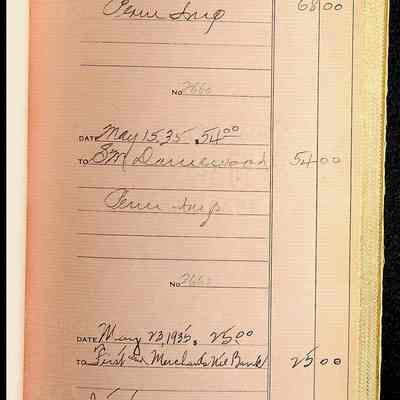 Perm Imp 68 00
No 2660
DATE May 15 35, 54 00
TO SM Danewood 54 00
Perm Imp
No 266
DATE May 23, 1935. 25 00
TO First and Merchants Nat Bank 25 00